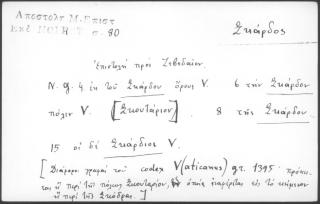 Αποστολ Μ.Επιστ
Εκδ ΠΟΙΗ Τ σ. 80
Σκάρδος
Ἐπιστολὴ πρὸς Ζεβεδαῖον
N. 9. 4 ἐκ τοῦ Σκάρδου ὄρους V. 6 τὴν Σκάρδον
πόλιν V. [Σκουτάριον] 8 τῆς Σκάρδου
15 οἱ δὲ Σκάρδιοι V.
[Διάφοροι γραφαὶ τοῦ codex V(aticanus) gr. 1395 πρόκει-
ται ἢ περὶ τῆς πόλεως Σκουταρίου, ὁποῖος ἀναφέρεται εἰς τὸ κείμενον
ἢ περὶ τῆς Σκόδρας.]